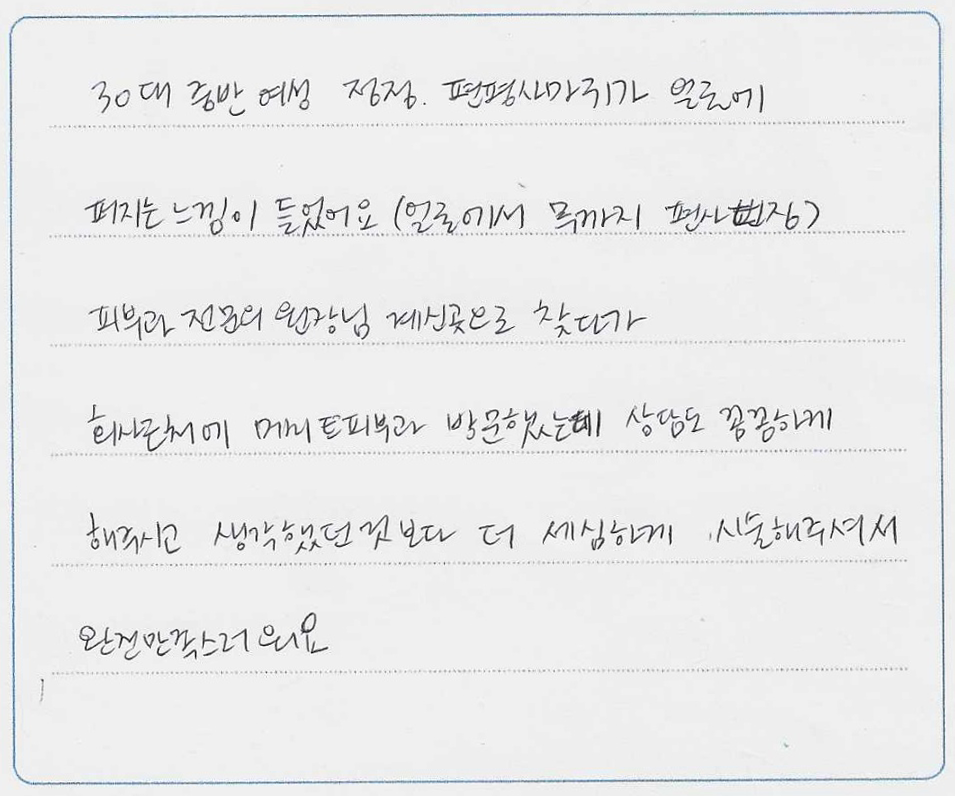 30대 중반 여성 점점. 편평사마귀가 얼굴에
퍼지는느낌이 들었어요 (얼굴에서 목까지 편사
피부과 전문의 원장님 계신곳으로 찾다가
회사근처에 메리트피부과 방문했는데 상담도 꼼꼼하게
해주시고 생각했던것보다 더 세심하게 시술해주셔서
완전만족스러워요